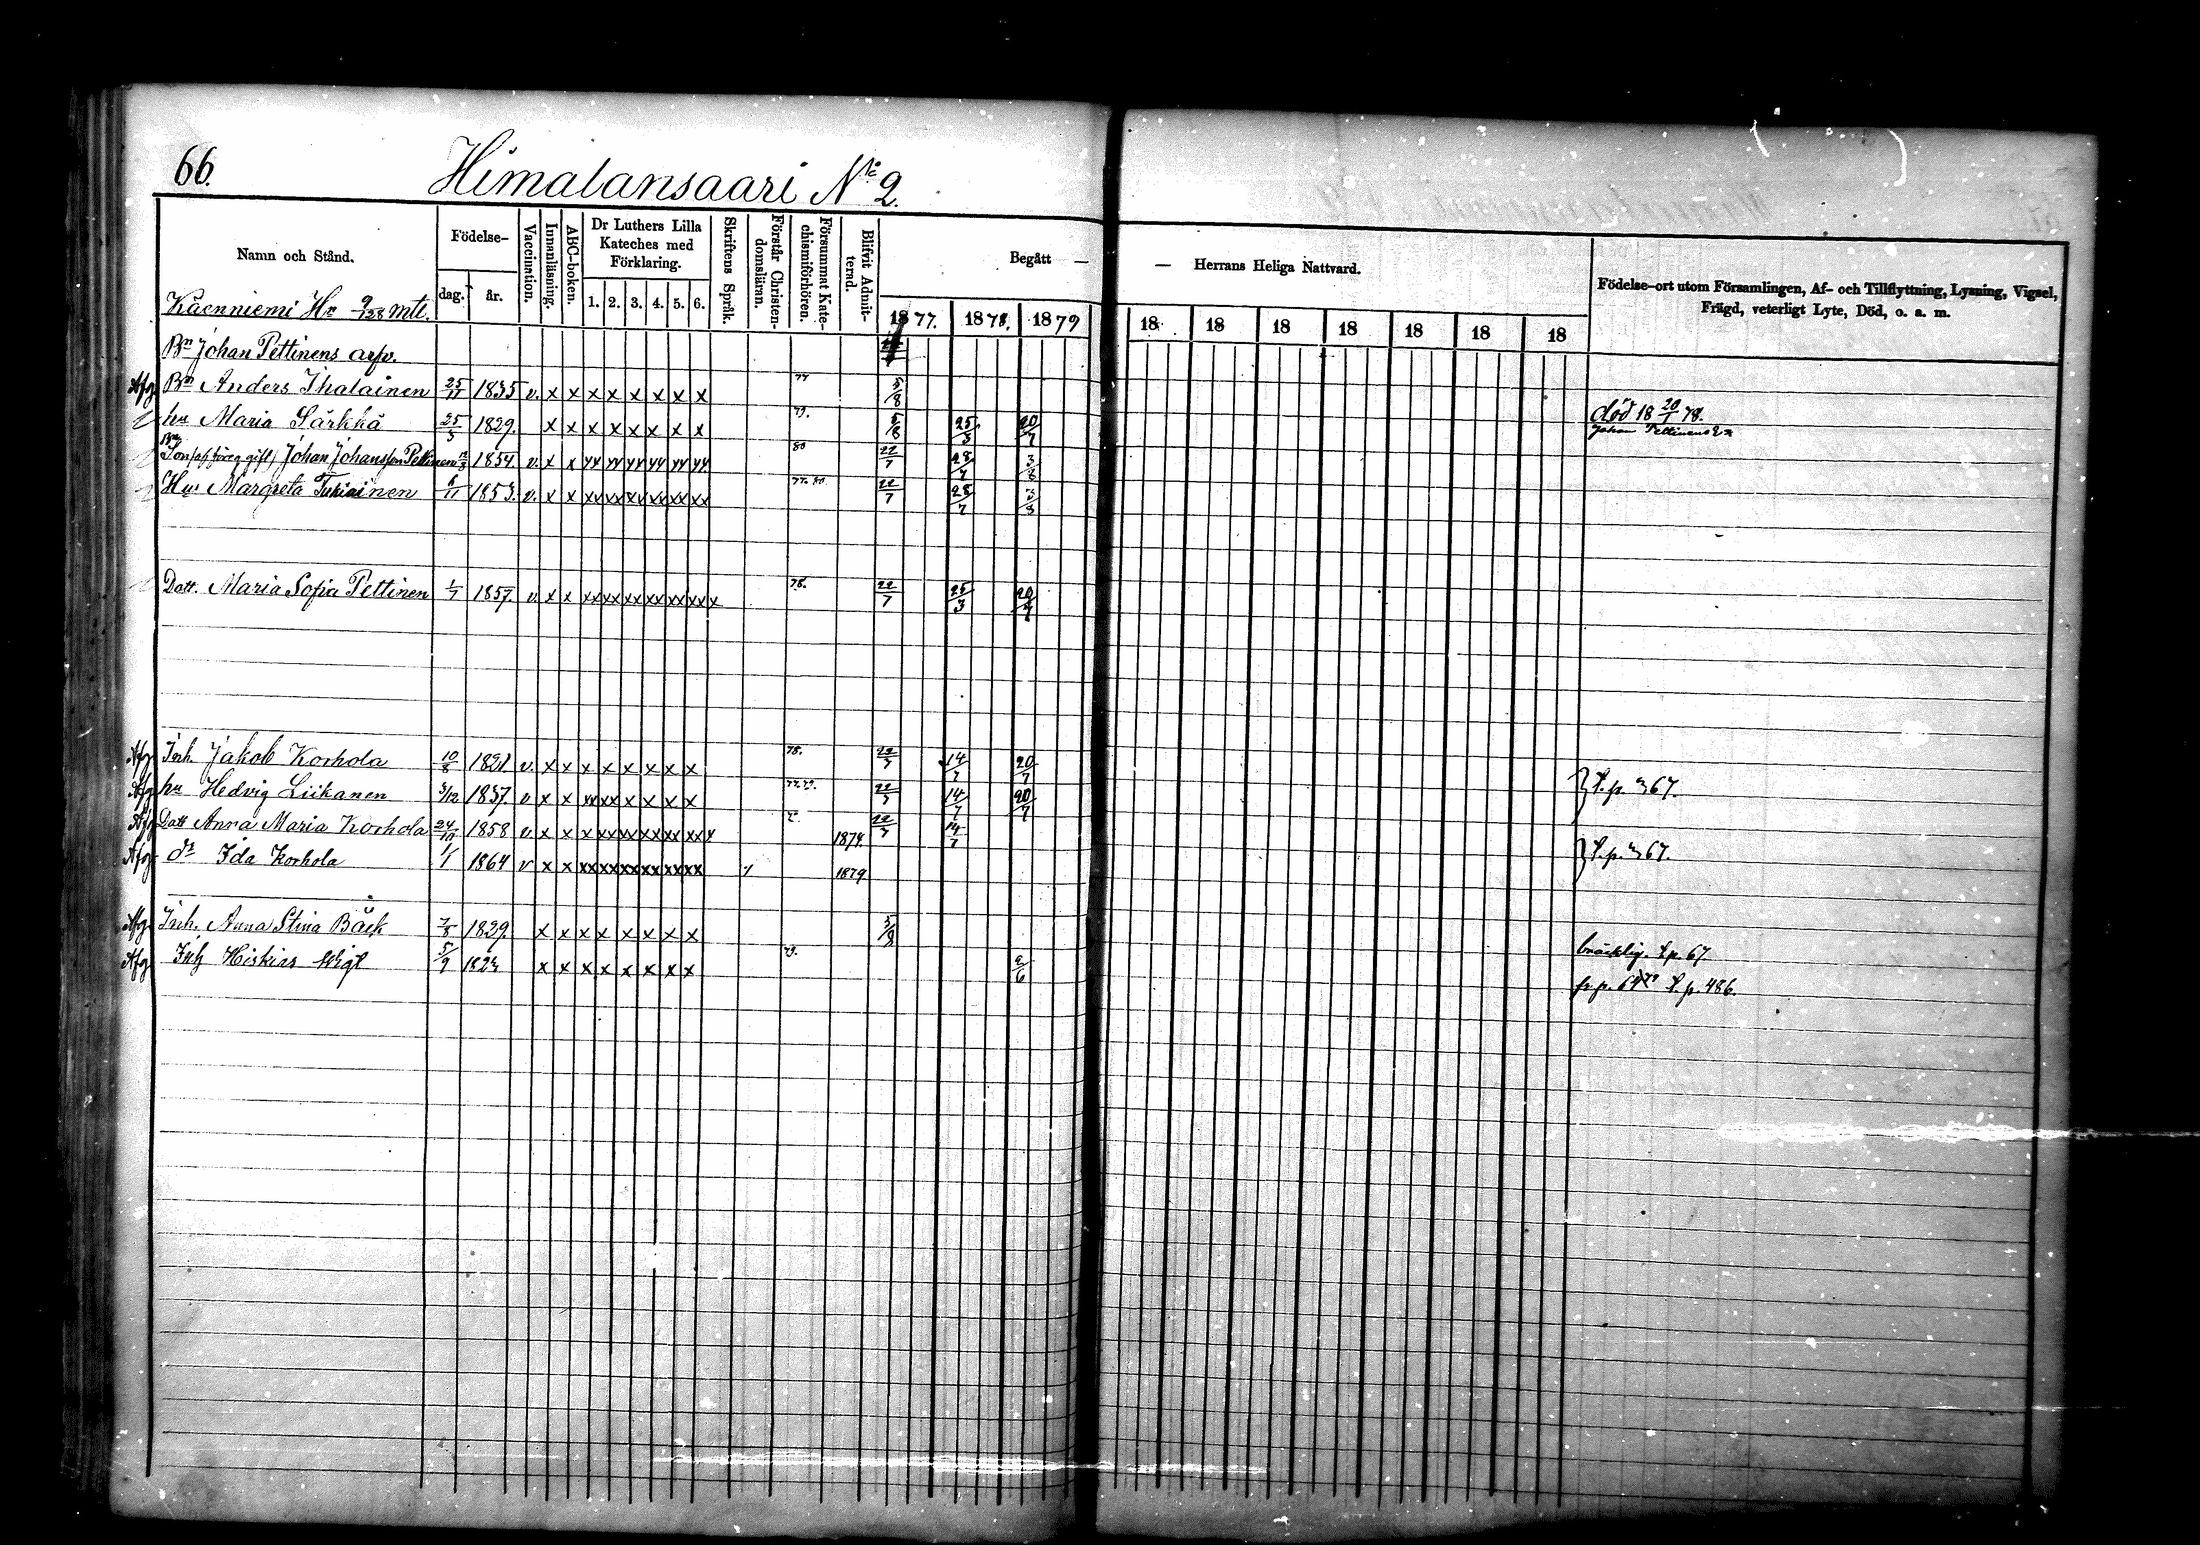 66.
Himalansaari No 2.
Namn och Stånd.
Födelse-
dag.
år.
Vaccination.
Innanläsning.
ABC-boken.
Dr Luthers Lilla
Kateches med
Förklaring.
1. 2. 3. 4. 5. 6.
Skriftens Språk.
Förstår Christen-
domsläran.
Försummat Kate-
chismiförhören.
Blifvit Admit-
terad.
Begått —
— Herrans Heliga Nattvard.
Födelse-ort utom Församlingen, Af- och Tillflyttning, Lysning, Vigsel,
Frägd, veterligt Lyte, Död, o. a. m.
1877. 1878. 1879 18 18 18 18 18 18 18
Käenniemi mtl.
Bn Johan Pettinens arfv.
Afg. Bn Anders Ihalainen 25/11 1835 v. x x x x x x x x 77 5/8
död 18 20/1 78.
hu Maria Särkkä 25/3 1829. x x x x x x x x 79. 5/8 25/3 20/7
Johan Pettinens
Johan Johansson Pettinen 1854. v. x x xx xx xx xx xx xx 80 22/7 28/7 3/8
Hu Margreta 6/11 1853. v. x x xx xx xx xx xx xx 22/7 28/7 3/8
Dott. Maria Sofia Pettinen 1/7 1857. v. x x xx xx xx xx xx xx x 78. 22/7 25/3 20/7
Afg. Inh. Jakob Korhola 10/8 1821. v. x x x x x x x x 78. 22/7 14/7 20/7
Afg. hu Hedvig Liikanen 3/12 1837. v x x xx xx x x x x 22/7 14/7 20/7
t. p. 67.
Afg. Dott Anna Maria Korhola 24/10 1858 v. x x x xx xx xx xx xx x 1874. 22/7 14/7
Afg. Ida Korhola 1/1 1864 v x x xx xx xx xx xx xx 1879
t. p. 67.
Afg. Inh. Anna Stina Bäck 7/8 1829. x x x x x x x x 5/8
bräcklig. t. p. 67
Afg. Inh Hiskias 5/9 1823 x x x x x x x x 79. 2/6
fr. p. 64 t. p. 486.